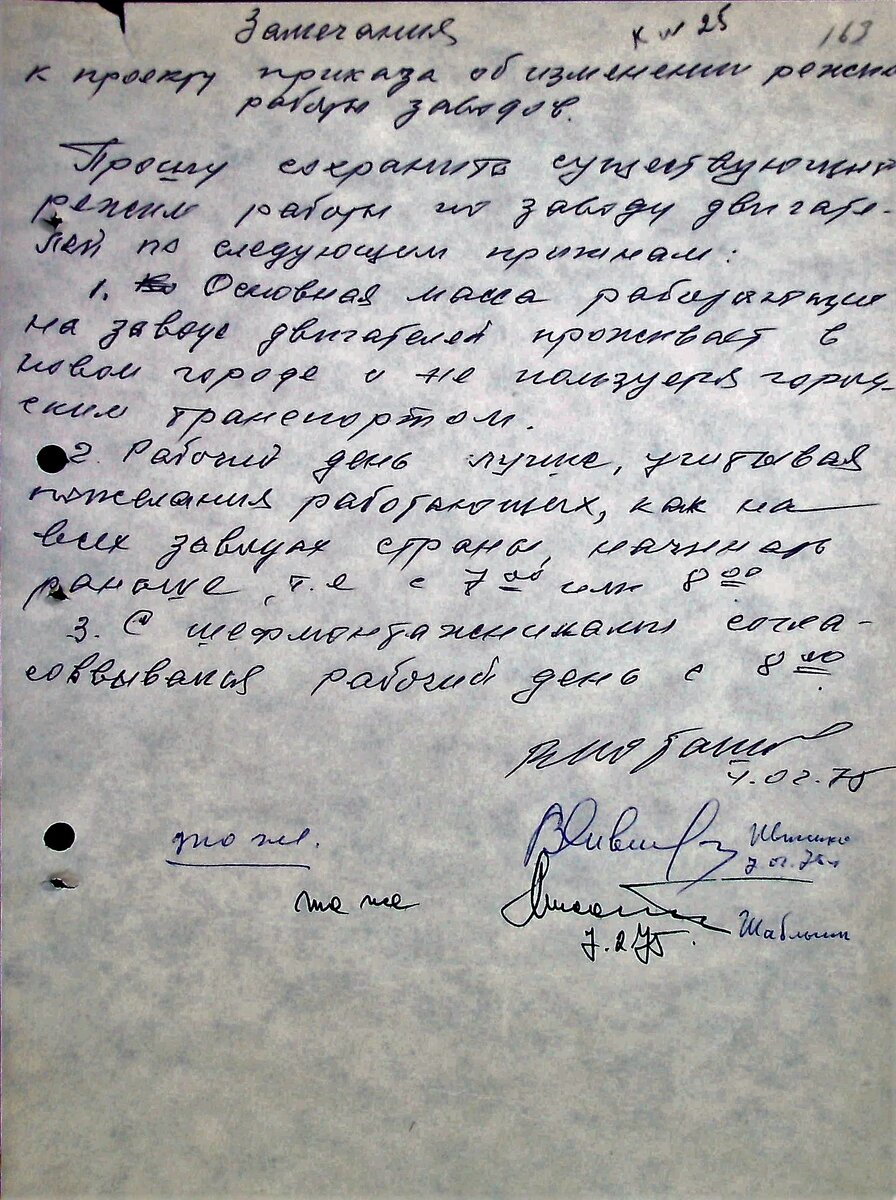 Замечания
к № 25
169
к проекту приказа об изменении режим
работы заводов.
Прошу сохранить существующий
режим работы по заводу двигате-
лей по следующим причинам:
1. Основная масса работающих
на заводе двигателей проживает в
новом городе и не пользуется город-
ским транспортом.
2. Рабочий день лучше, учитывая
пожелания работающих, как на
всех заводах страны, начинать
раньше, т.е с 7 00 или 8 00
3. С шефмонтажниками согла-
совывался рабочий день с 8 00.
4.02.75
то же.
7.02.75
то же
7.2.75.
Шаблыкин